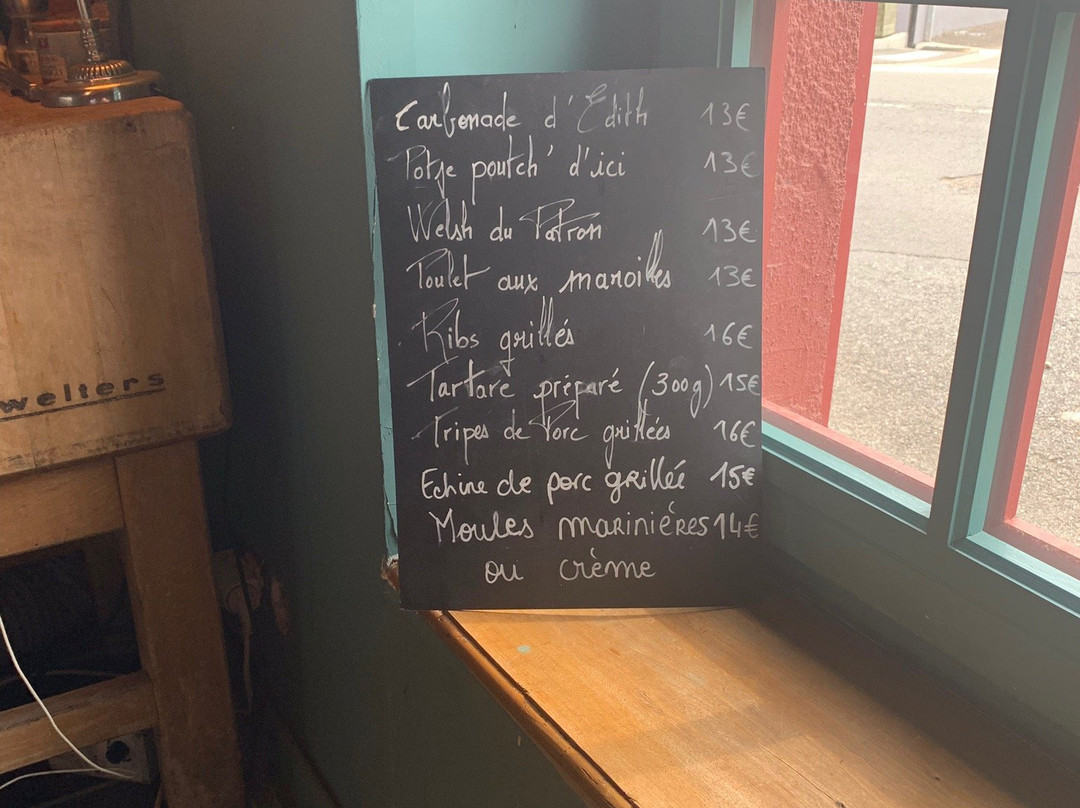 Carbonade d'Edith 13€
Potje poutch' d'ici 13€
Welsh du Patron 13€
Poulet aux maroilles 13€
Ribs grillés 16€
Tartare préparé (300g) 15€
Tripes de Porc grillées 16€
Echine de porc grillée 15€
Moules marinières 14€
ou crème
welters